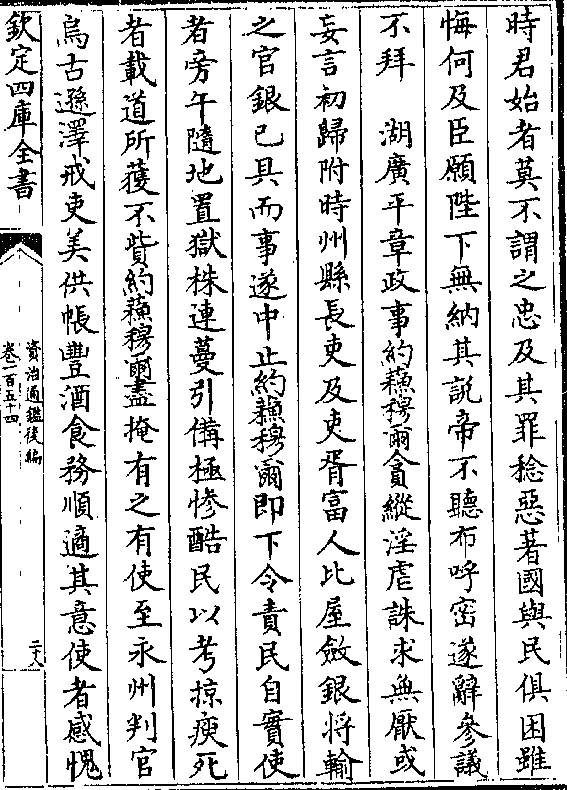 時君始者莫不謂之忠及其罪稔惡著國與民俱困雖
悔何及臣願陛下無納其説帝不聽布呼密遂辭參議
不拜　湖廣平章政事約蘇穆爾貪縱淫虐誅求無厭或
妄言初歸附時州縣長吏及吏胥富人比屋斂銀將輸
之官銀已具而事遂中止約蘇穆爾即下令責民自實使
者旁午隨地置獄株連蔓引備極慘酷民以考掠瘐死
者載道所獲不貲約蘇穆爾盡掩有之有使至永州判官
烏古遜澤戒吏美供帳豐酒食務順適其意使者感愧
欽定四庫全書
資治通鑑後編
卷一百五十四
二十八